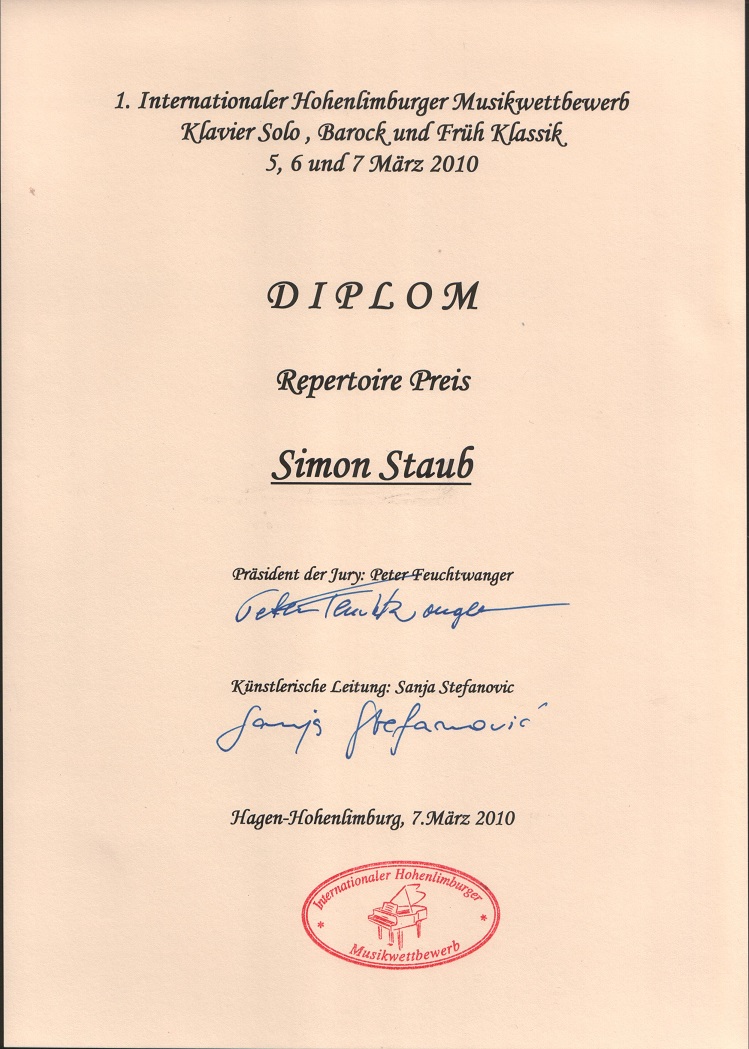 1. Internationaler Hohenlimburger Musikwettbewerb
Klavier Solo , Barock und Früh Klassik
5, 6 und 7 März 2010
D I P L O M
Repertoire Preis
Simon Staub
Präsident der Jury: Peter Feuchtwanger
Peter Feuchtwanger
Künstlerische Leitung: Sanja Stefanovic
Sanja Stefanović
Hagen-Hohenlimburg, 7.März 2010
Internationaler Hohenlimburger
* *
Musikwettbewerb